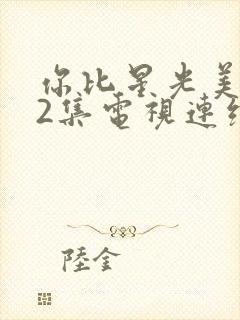 你比星光美
2集電視連
陸金